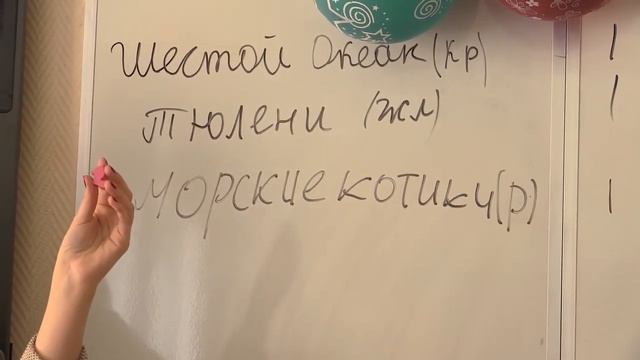 Шестой Океан (кр)
Тюлени (жл)
Морские котики (р)